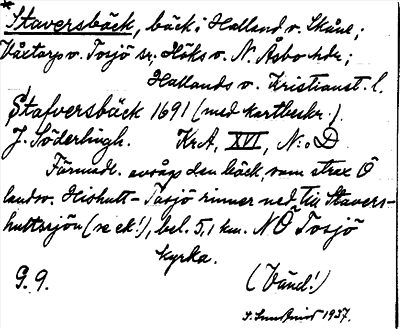 *Staversbäck, bäck i Halland o. Skåne;
Våxtorp o. Tosjö sr. Höks o. N. Åsbo hdr;
Hallands o. Kristianst. l.
Stafversbäck 1691 (med kartbeskr.).
J. Söderlingh. KrA, XVI, N:o D
Förmodl. avsågs den bäck, som strax Ö
landsv. Hishult – Tosjö rinner ned till Stavers-
hultssjön (se ek!), bel. 5,1 km. NÖ Tosjö
kyrka.
G. G. (Vänd!)
1937.